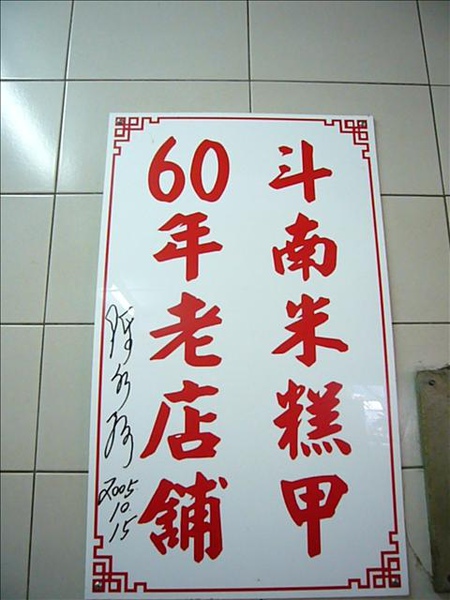 斗南米糕甲
60年老店舖
2005
10.15